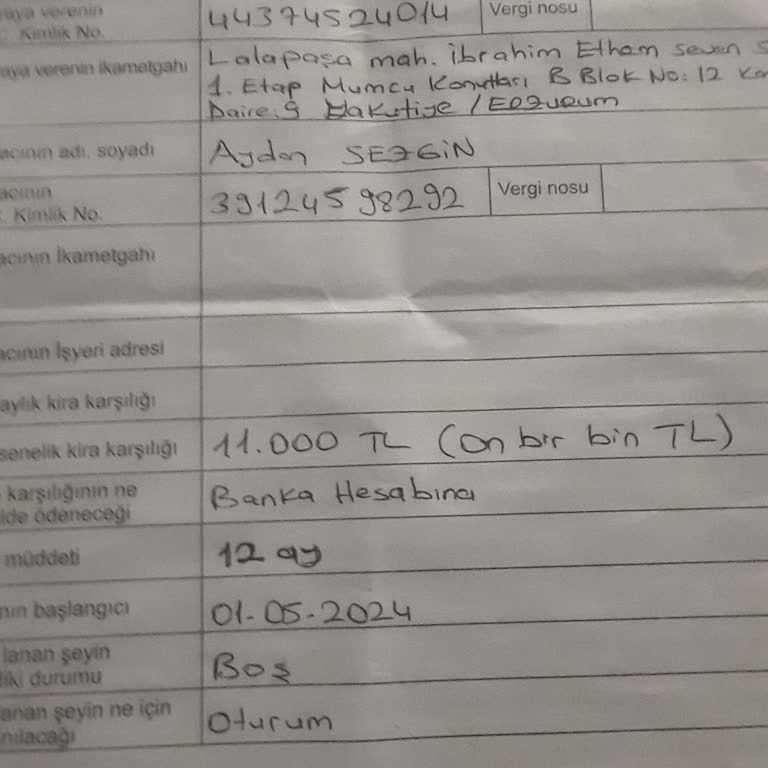 raya verenin
Kimlik No. 44374524014 Vergi nosu
raya verenin ikametgahı Lalapaşa mah. İbrahim Etham seven S
1. Etap Mumcu Konutları B Blok No: 12
Daire. 9 Yakutiye / Erzurum
acının adı, soyadı Aydan SEZGİN
acının
Kimlik No. 39124598292 Vergi nosu
acının İkametgahı
acının İşyeri adresi
aylık kira karşılığı
senelik kira karşılığı 11.000 TL (on bir bin TL)
karşılığının ne
ilde ödeneceği Banka Hesabına
müddeti 12 ay
nın başlangıcı 01-05-2024
lanan şeyin
iki durumu Boş
anan şeyin ne için
nılacağı Oturum